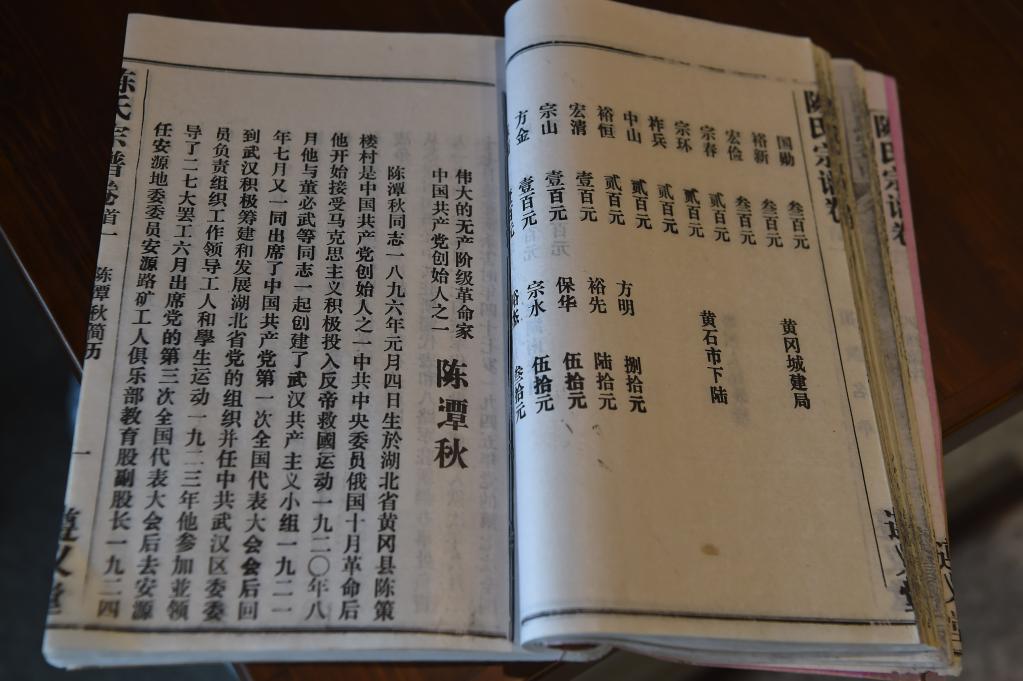 陳氏宗谱卷
国勋 叁百元 黄冈城建局
裕新 叁百元
宏俭 叁百元
宗春 贰百元 黄石市下陆
宗环 贰百元
祚兵 贰百元
中山 贰百元 方明 捌拾元
裕恒 贰百元 裕先 陆拾元
宏清 壹百元 保华 伍拾元
宗山 壹百元 宗水 伍拾元
方金 壹百元 叁拾元
伟大的无产阶级革命家
中国共产党创始人之一
陈潭秋
陈潭秋同志一八九六年元月四日生於湖北省黄冈县陈策
楼村是中国共产党创始人之一中共中央委员俄国十月革命后
他开始接受马克思主义积极投入反帝救國运动一九二〇年八
月他与董必武等同志一起创建了武汉共产主义小组一九二一
年七月又一同出席了中国共产党第一次全国代表大会会后回
到武汉积极筹建和发展湖北省党的组织并任中共武汉区委委
员负责组织工作领导工人和學生运动一九二三年他参加並领
导了二七大罢工六月出席党的第三次全国代表大会后去安源
任安源地委委员安源路矿工人俱乐部教育股副股长一九二四
陈氏宗谱卷首一 陈潭秋简历 一